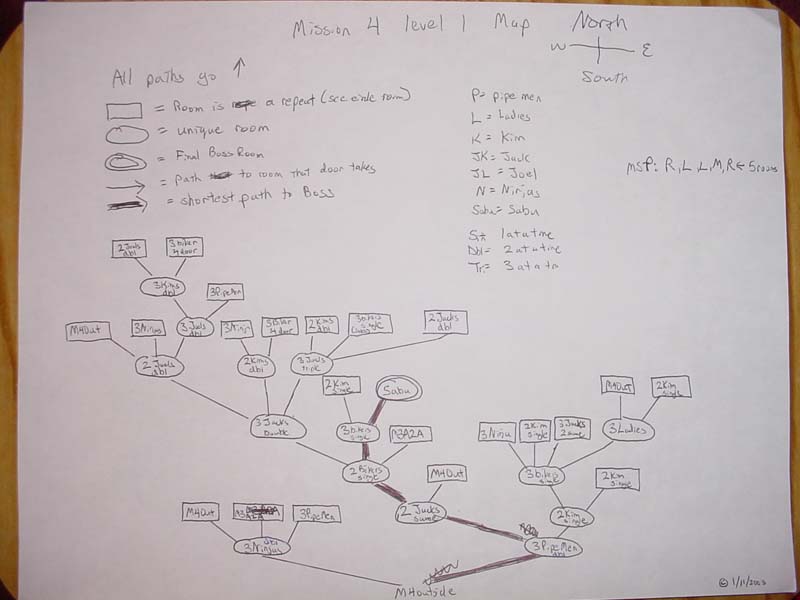 Mission 4 level 1 Map
North
W E
South
All paths go
= Room is a repeat (see circle room)
= unique room
= Final Boss Room
= path to room that door takes
= shortest path to Boss
P= pipe men
L = Ladies
K = Kim
JK = Jack
JL = Joel
N = Ninjas
Sabu = Sabu
1 at a time
Dbl = 2 at a time
Tr = 3 at a tm
MSP: R, L, L, M, R = 5 rooms
2 Jacks
dbl
3 biker
4 door
3 Kims
dbl
3 Pipe Men
3 Jacks
dbl
M4Out
3 Ninjas
2 Jacks
dbl
3 Ninja
3 Biker
4 door
2 Kims
dbl
3 bikers
single
2 Jacks
dbl
2 Kims
dbl
3 Jacks
triple
2 Kim
single
Sabu
3 Jacks
Double
3 bikers
single
M3A2A
2 Bikers
single
M4Out
2 Jacks
same
M4Out
2 Kim
single
3 Ninja
2 Kim
single
3 Jacks
2 same
3 Ladies
3 bikers
single
2 Kim
single
2 Kim
single
M4Out
3 Pipe Men
3 Ninjas
dbl
3 Pipe Men
dbl
M4 outside
© 1/11/2003